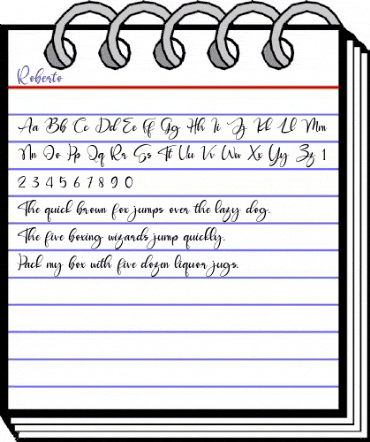 Roberto
Aa Bb Cc Dd Ee Ff Gg Hh Ii Jj Kk Ll Mm
Nn Oo Pp Qq Rr Ss Tt Uu Vv Ww Xx Yy Zz 1
2 3 4 5 6 7 8 9 0
The quick brown fox jumps over the lazy dog.
The five boxing wizards jump quickly.
Pack my box with five dozen liquor jugs.